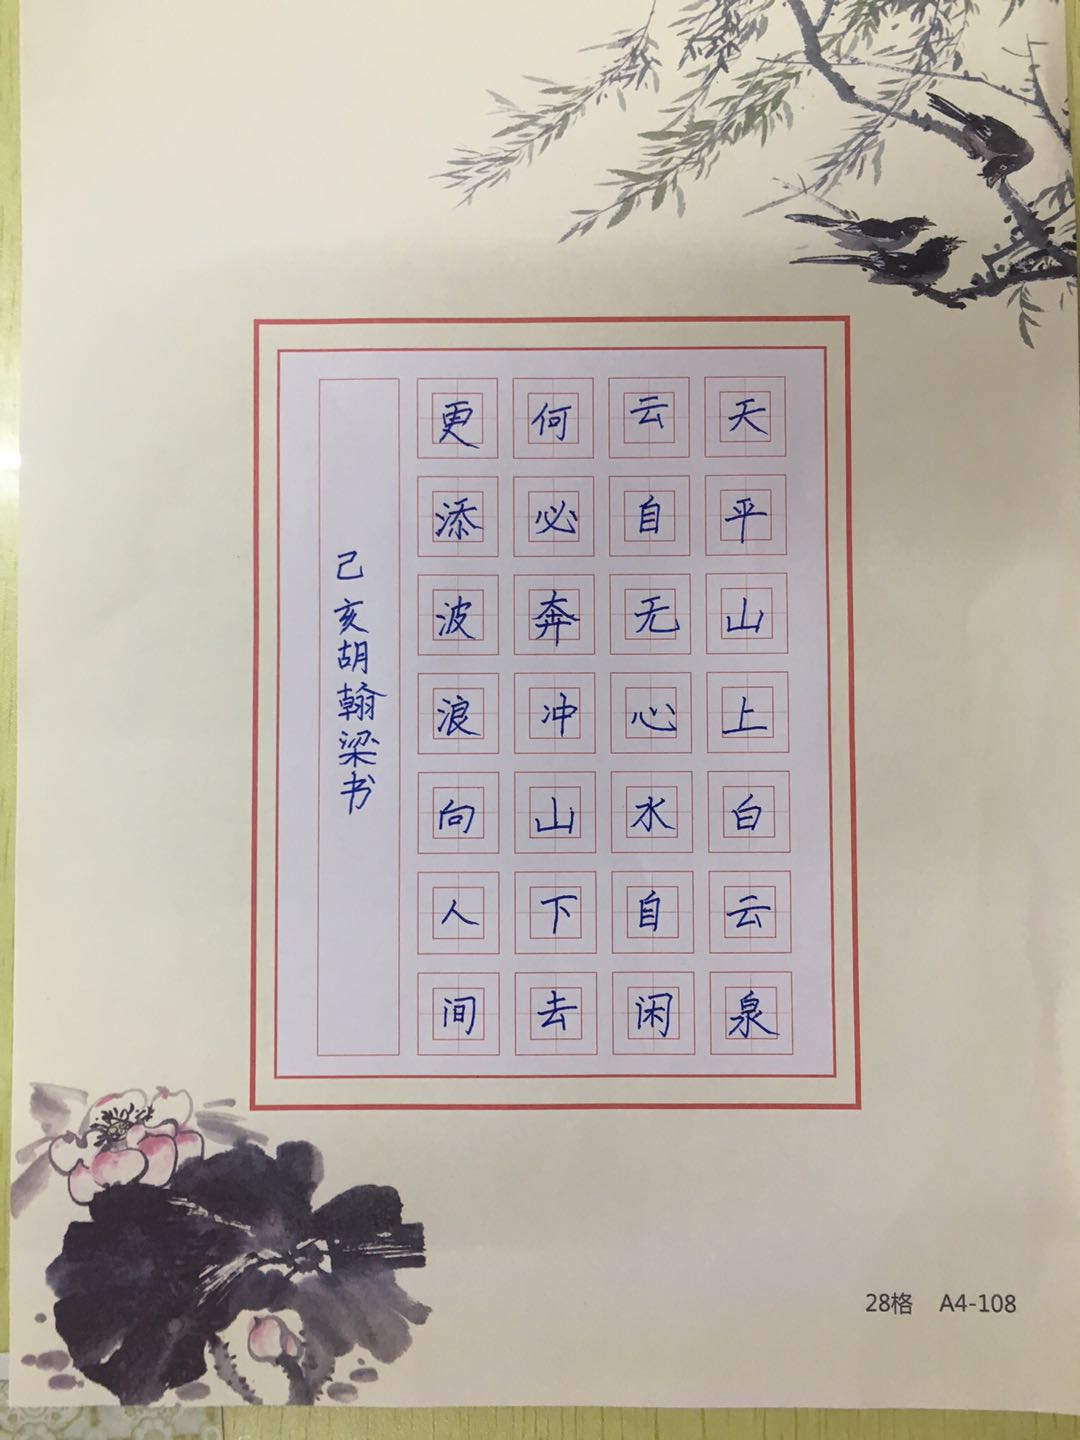 天平山上白云泉
云自无心水自闲
何必奔冲山下去
更添波浪向人间
己亥胡翰梁书
28格 A4-108